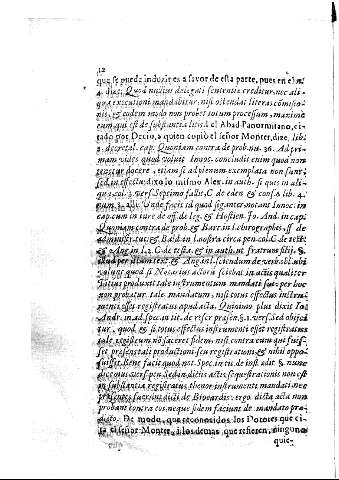 12
que se puede induzir es a favor de esta parte, pues en el nu.
4. dize: Quod nuntius delegati sententia creditur, nec ali-
qua executioni mandabitur, nisi ostendat literas cōmissio-
nis, & eodem modo non probet totum processum, maxime
cum quit est de substantia litis: al Abad Panormitano, ci-
tado por Decio, a quien copiò el señor Monter, dize, lib.
2. decretal. cap. Quoniam contra de prob. nu. 36. Ad pri-
mam vides quod voluit Innoc. concludit enim quod non
tenetur docere, etiam si ad plenum exemplata non sunt,
sed in effectu: dixo lo mismo Alex. in auth. si quis in ali-
quo col. 3. vers. Septimo fallit, C. de eden & consi. lib. 4.
num. Vnde facit id quod signanter notant Innoc. in
cap. cum in iure de off. deleg. & Hostien. Io. And. in cap.
Quoniam contra de prob. & Bart. in l. chirographis, ff. de
administ. tut. & Bald. in l. nostra circa pen. col. C. de test.
& Ang. in l. 2. C. de testa. & in auth.
quod per illum text. & Angel. sciendum de verb. obl.
volunt quod si Notarius actorum scribat in actis qualiter
Titius produxit tale instrumentum mandati fuit per hoc
non probatur tale mandatum, nisi totus effectus instru-
menti esset registratus apud acta. Quinimo plus dixit Io.
Andr. in ad spec. in tit. de rescr. præsen. §. 1. vers. Sed obijci-
tur, quod & si totus effectus instrumenti esset registratus
tale registrum nō faceret fidem, nisi contra eum qui fuis-
set præsens tali productioni seu registrationi & nihil oppo-
suisset. Bene facit quod not. Spec. in tit. de inst. edit. §. nunc
dicemus vers. pen. sed in dictis actis sequestrationis non est
in substantia registratus thenor instrumenti mandati nec
præsentes fuerint dicti de Brocardis: ergo dicta acta non
probant contra eos neque fidem faciunt de mandato præ-
dicto. De modo, que reconocidos los Dotores que ci-
ta el señor Monter, i los demas que refieren, ninguno
quie-